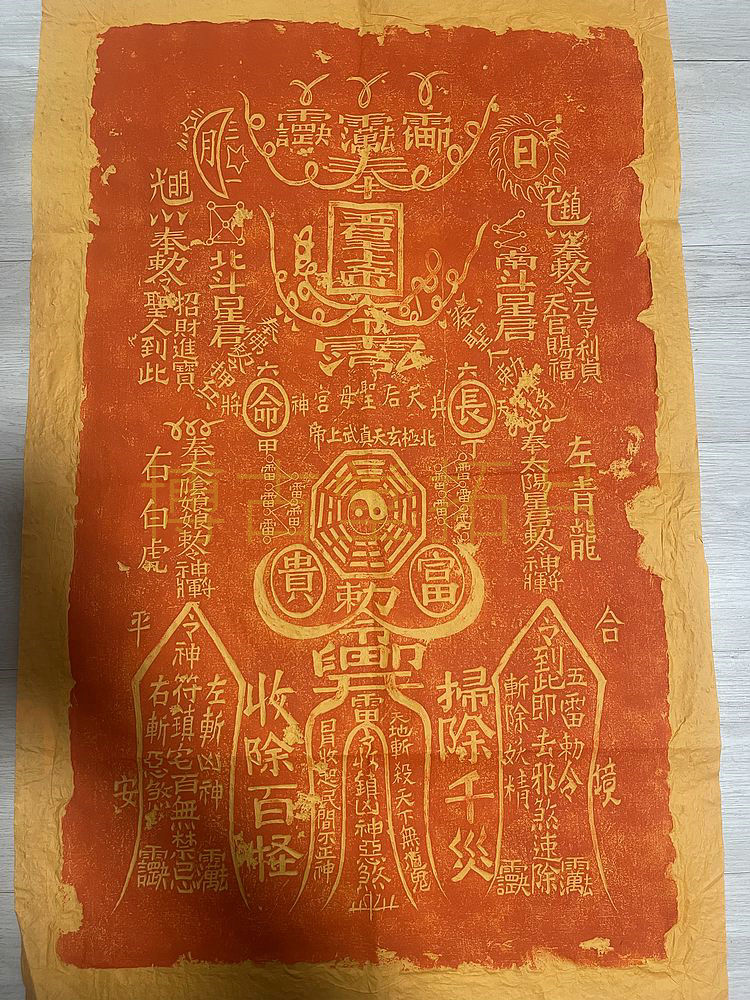 奉
日
月
鎮
奉勅令
元亨利貞
天官賜福
南斗星君
北斗星君
光明
奉勅令
招財進寶
聖人到此
天后聖母宮
北極玄天真武上帝
六
長
丁
六
命
甲
天兵
神將
左青龍
奉太陽星君勅令神
奉太陰娘娘勅令神
右白虎
富
貴
勅令
合境
平安
令到此即去邪煞速除
五雷勅令
斬除妖精
掃除千災
收除百怪
雷令收鎮凶神惡煞
天地斬殺天下無道鬼
民間不正神
令神符鎮宅百無禁忌
左斬凶神
右斬惡煞